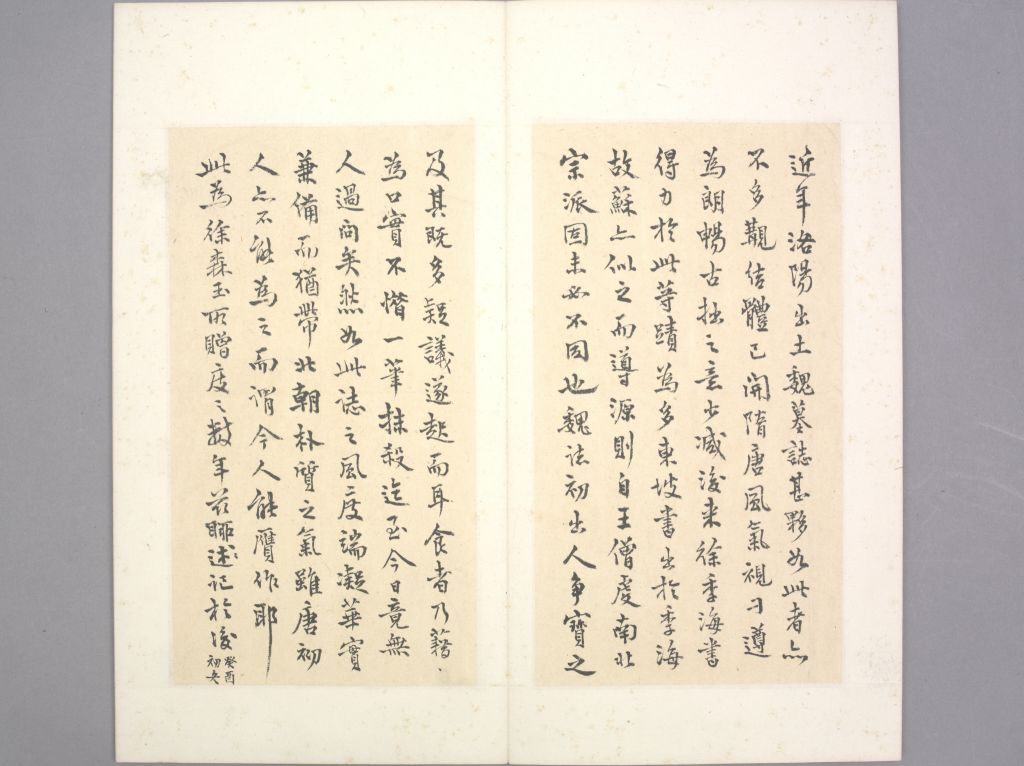 近年洛陽出土魏墓誌甚夥如此者亦
不多觀結體已開隋唐風氣視刁遵
為朗暢古拙之意少減後來徐季海書
得力於此等蹟為多東坡書出於季海
故蘇亦似之而導源則自王僧虔南北
宗派固未必不同也魏誌初出人争寶之
及其既多疑議遂起而耳食者乃藉
為口實不惜一筆抹殺迄至今日竟無
人過問矣然如此誌之風度端凝華實
兼備而猶帶北朝朴質之氣雖唐初
人亦不能為之而謂今人能贋作耶
此為徐森玉所贈庋之數年茲略述記於後
癸酉
初冬